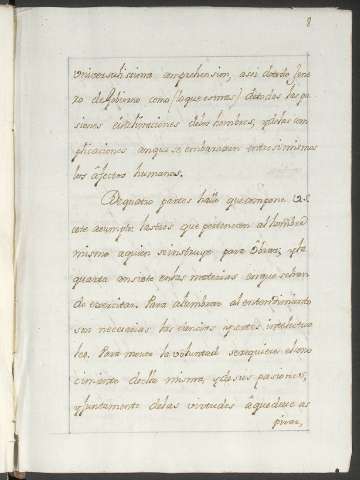 8
universalissima comprehension, assi de todo Gene
ro de Gobierno como (lo que es mas) de todas las pa
siones è inclinaciones delos hombres, y delas com
plicaciones en que se embarazan entre si mismos
los afectos humanos.
De quatro partes hallo que compone V.E.
este assumpto. las tres que pertenecen al hombre
mismo a quien se instruye para obrar, y la
quarta consiste en las materias en que se han
de exercitar. Para alumbrar al entendimiento
son necesarias las ciencias y artes intelectua
les. Para mover la voluntad se requiere el cono
cimiento de ella misma, y de sus pasiones,
y juntamente delas virtudes à que deve as
pirar,